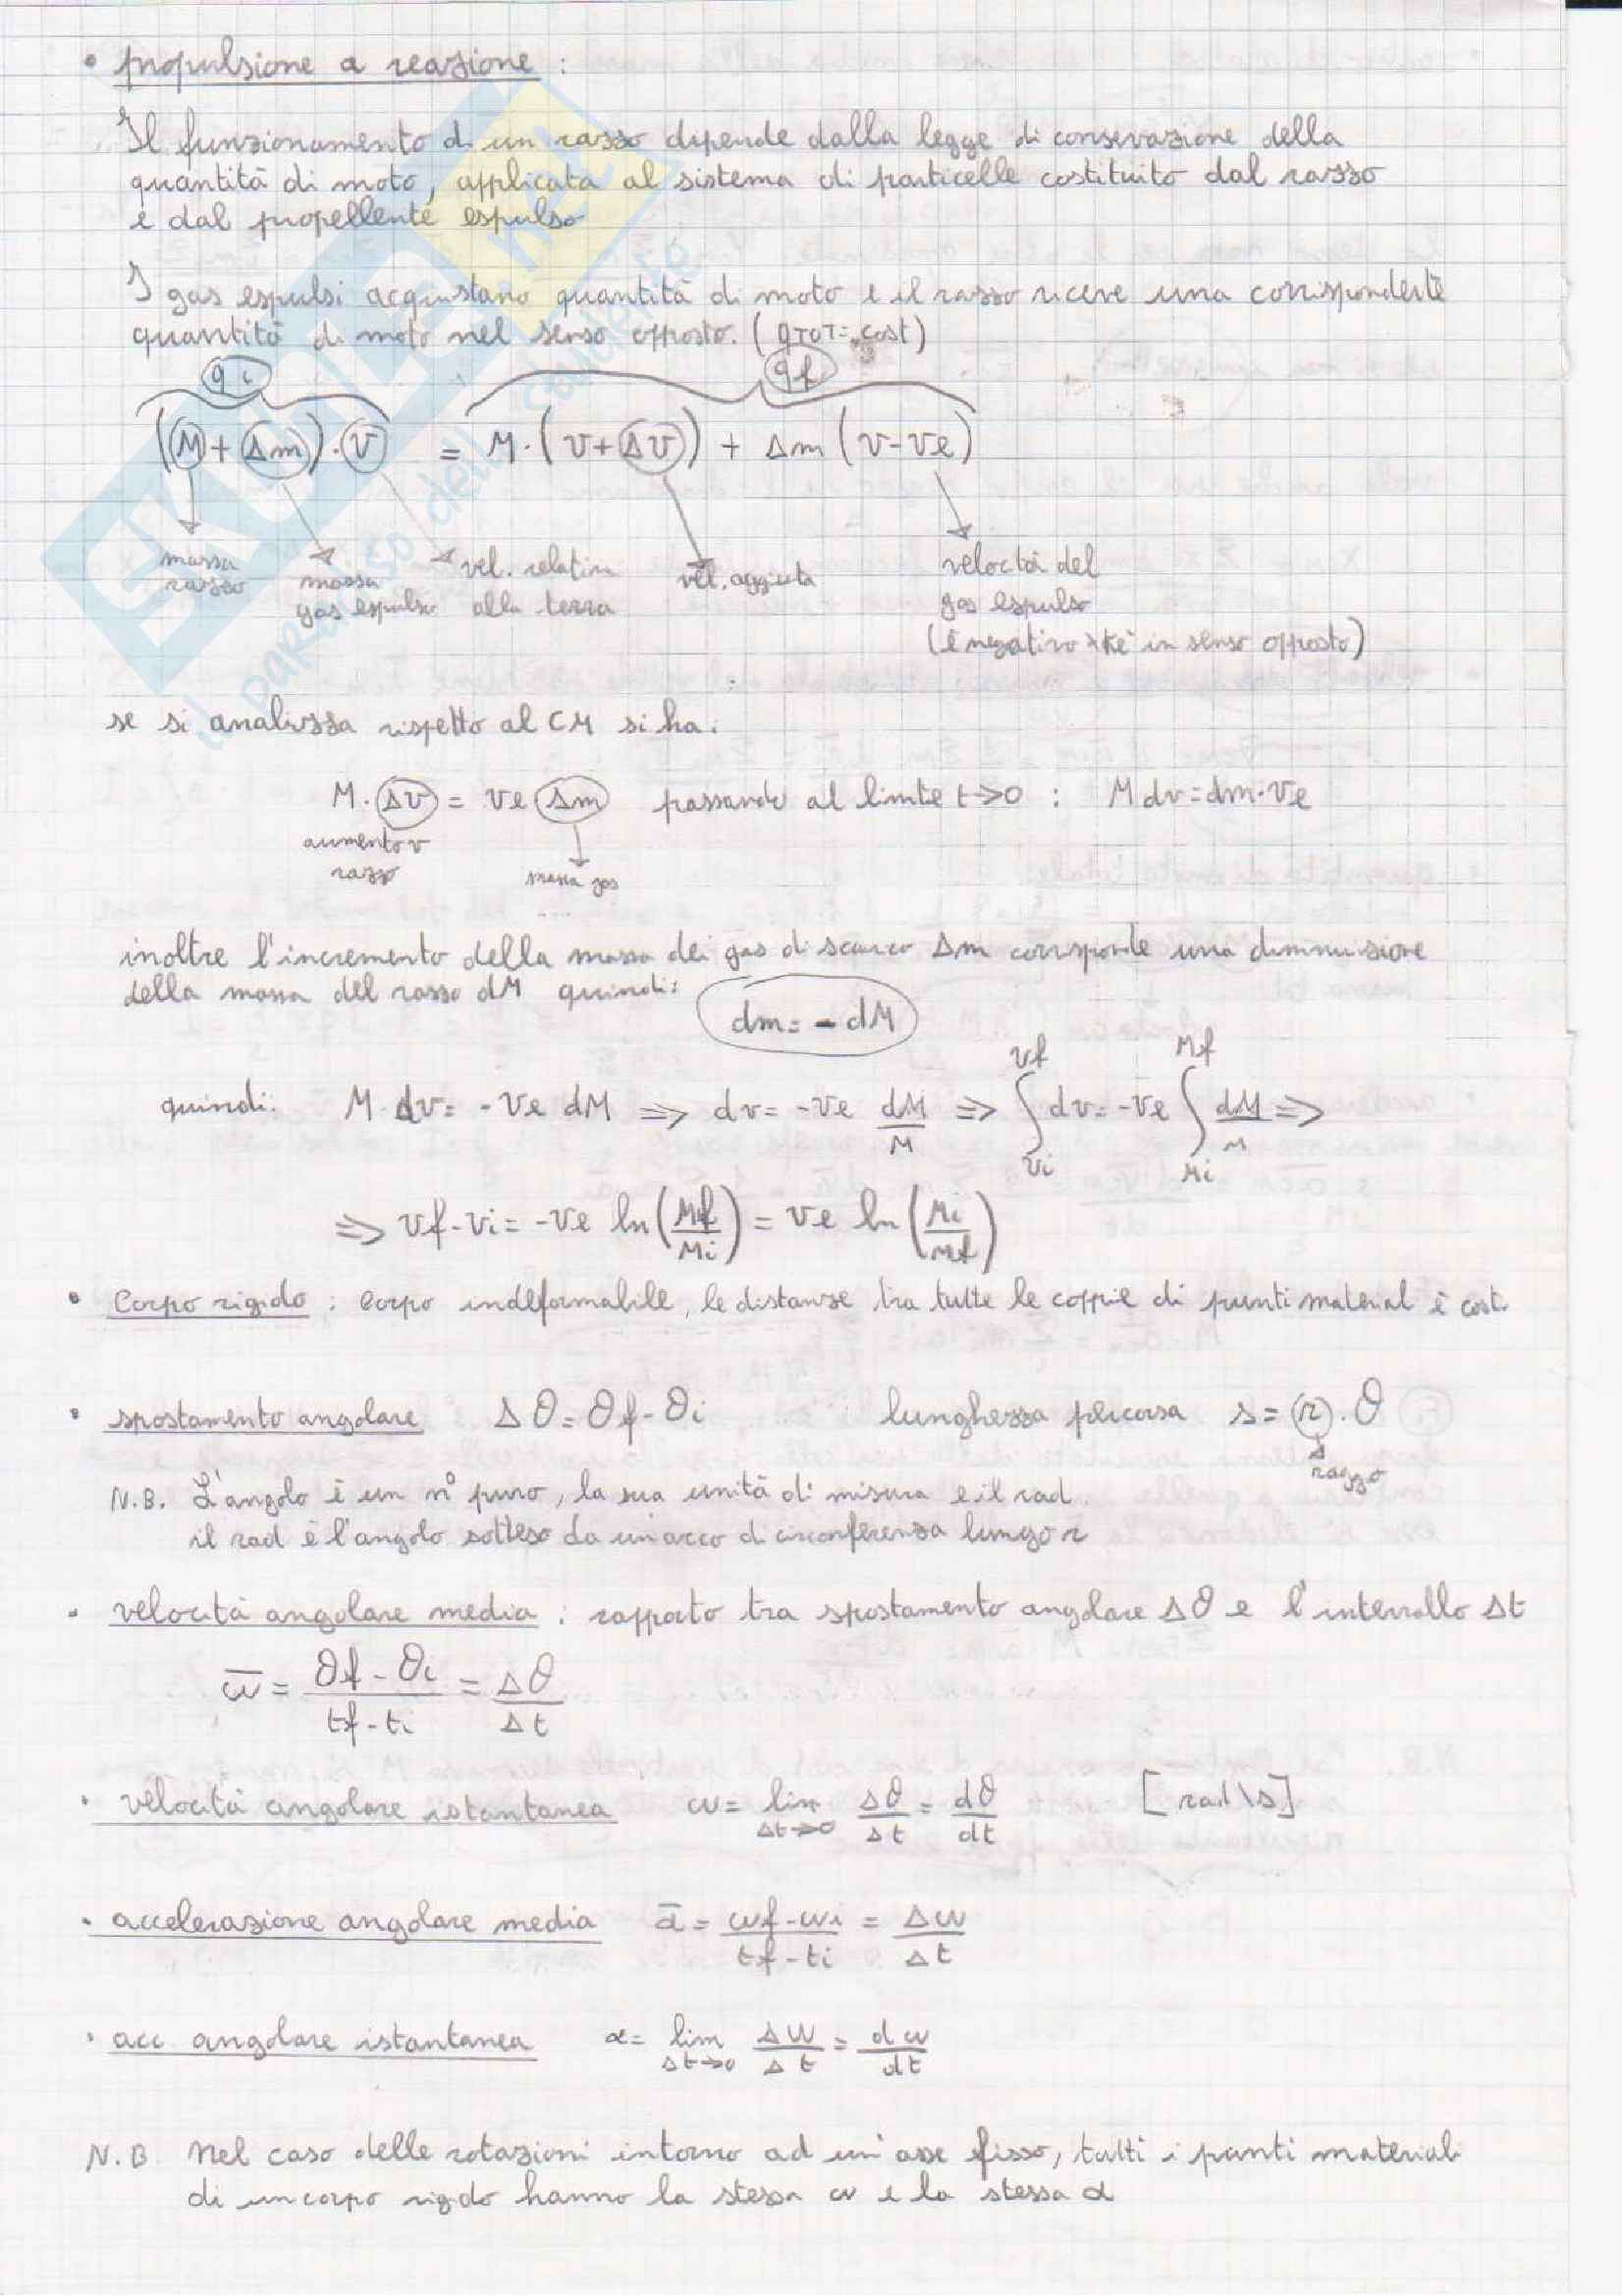 • propulsione a reazione :
Il funzionamento di un razzo dipende dalla legge di consevazione della
quantità di moto, applicata al sistema di particelle costituito dal razzo
e dal propellente espulso
I gas espulsi acquistano quantità di moto e il razzo riceve una corrispondente
quantità di moto nel senso opposto. (qTOT = cost)
qi qf
(M + Δm) · v = M · (v + Δv) + Δm (v - ve)
massa razzo
massa gas espulso
vel. relativa alla terra
vel. aggiunta
velocità del
gas espulso
(è negativo xkè in senso opposto)
se si analizza rispetto al CM si ha:
M · Δv = ve Δm passando al limite t→0 : M dv = dm · ve
aumento v
razzo
massa gas
inoltre l'incremento della massa dei gas di scarico Δm corrisponde una diminuzione
della massa del razzo dM quindi:
dm = - dM
quindi: M · dv = -ve dM ⇒ dv = -ve dM/M ⇒ ∫_vi^vf dv = -ve ∫_Mi^Mf dM/M ⇒
⇒ vf - vi = -ve ln(Mf/Mi) = ve ln(Mi/Mf)
• Corpo rigido : corpo indeformabile, le distanze tra tutte le coppie di punti material è cost.
• spostamento angolare Δθ = θf - θi lunghezza percorsa s = r · θ
raggio
N.B. L'angolo è un n° puro, la sua unità di misura e il rad.
il rad è l'angolo sotteso da un arco di circonferenza lungo r
• velocità angolare media : rapporto tra spostamento angolare Δθ e l'intervallo Δt
ω̄ = (θf - θi)/(tf - ti) = Δθ/Δt
• velocità angolare istantanea ω = lim Δt→0 Δθ/Δt = dθ/dt [rad\s]
• accelerazione angolare media ᾱ = (ωf - ωi)/(tf - ti) = Δω/Δt
• acc. angolare istantanea α = lim Δt→0 Δω/Δt = dω/dt
N.B. Nel caso delle rotazioni intorno ad un'asse fisso, tutti i punti materiali
di un corpo rigido hanno la stessa ω e la stessa α
SKUOLA.net
il paradiso dello studente